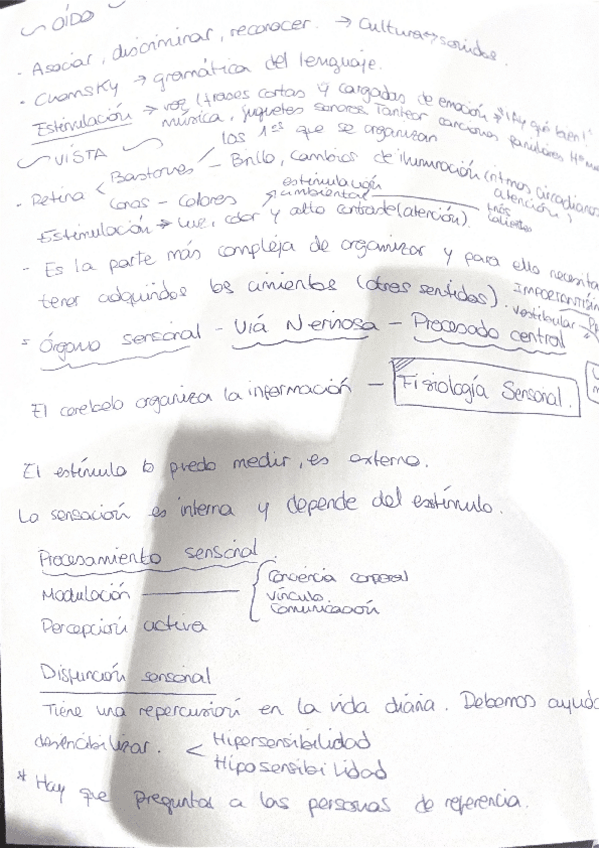 ~ OÍDO
- Asociar, discriminar, reconocer. → Cultura ↔ sonidos.
- Chomsky → gramática del lenguaje.
Estimulación → voz (frases cortas y cargadas de emoción → "¡Ay qué bien!"
música, juguetes sonoros. Tantear canciones familiares
~ VISTA ~ los 1ᵒˢ que se organizan
- Retina < Bastones - Brillo, cambios de iluminación (ritmos circadianos
Conos - Colores estimulación ambiental atención)
Estimulación → luz, color y alto contraste (atención).
- Es la parte más compleja de organizar y para ello necesita
tener adquiridos los cimientos (otros sentidos). vestibular
= Órgano sensorial - Vía Nerviosa - Procesado central
El cerebelo organiza la información - Fisiología Sensorial.
El estímulo lo puedo medir, es externo.
La sensación es interna y depende del estímulo.
Procesamiento sensorial.
Modulación { Conciencia corporal
vínculo.
comunicación
Percepción activa
Disfunción sensorial
Tiene una repercusión en la vida diaria. Debemos ayuda
desencibilizar. < Hipersensibilidad
Hiposensibilidad
* Hay que preguntar a las personas de referencia.